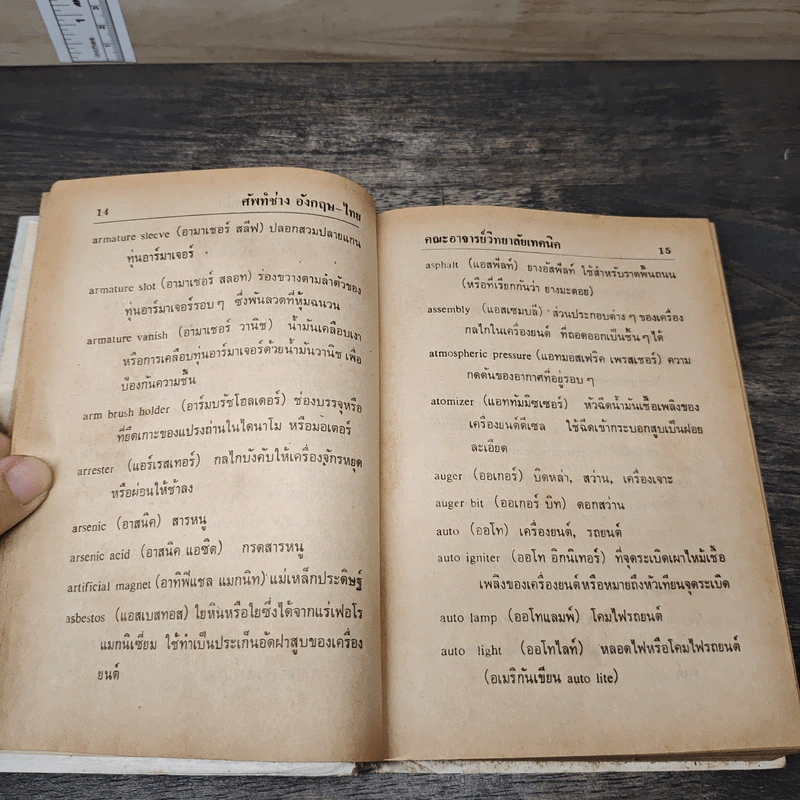 14 ศัพท์ช่าง อังกฤษ-ไทย
armature sleeve (อามาเชอร์ สลีฟ) ปลอกสวมปลายแกน
ทุ่นอาร์มาเจอร์
armature slot (อามาเชอร์ สลอท) ร่องขวางตามลำตัวของ
ทุ่นอาร์มาเจอร์รอบ ๆ ซึ่งพันลวดที่หุ้มฉนวน
armature vanish (อามาเชอร์ วานิช) น้ำมันเคลือบเงา
หรือการเคลือบทุ่นอาร์มาเจอร์ด้วยน้ำมันวานิช เพื่อ
ป้องกันความชื้น
arm brush holder (อาร์มบรัชโฮลเดอร์) ช่องบรรจุหรือ
ที่ยึดเกาะของแปรงถ่านในไดนาโม หรือมอเตอร์
arrester (แอร์เรสเทอร์) กลไกบังคับให้เครื่องจักรหยุด
หรือผ่อนให้ช้าลง
arsenic (อาสนิค) สารหนู
arsenic acid (อาสนิค แอซิด) กรดสารหนู
artificial magnet (อาทิฟีแชล แมกนิท) แม่เหล็กประดิษฐ์
asbestos (แอสเบสทอส) ใยหินหรือใยซึ่งได้จากแร่เฟอโร
แมกนิเซี่ยม ใช้ทำเป็นประเก็นอัดฝาสูบของเครื่อง
ยนต์
คณะอาจารย์วิทยาลัยเทคนิค 15
asphalt (แอสฟัลท์) ยางอัสฟัลท์ ใช้สำหรับราดพื้นถนน
(หรือที่เรียกกันว่า ยางมะตอย)
assembly (แอสเซมบลี) ส่วนประกอบต่าง ๆ ของเครื่อง
กลไกในเครื่องยนต์ ที่ถอดออกเป็นชิ้น ๆ ได้
atmospheric pressure (แอทมอสเฟริค เพรสเชอร์) ความ
กดดันของอากาศที่อยู่รอบ ๆ
atomizer (แอททัมมิซเซอร์) หัวฉีดน้ำมันเชื้อเพลิงของ
เครื่องยนต์ดีเซล ใช้ฉีดเข้ากระบอกสูบเป็นฝอย
ละเอียด
auger (ออเกอร์) บิดหล่า, สว่าน, เครื่องเจาะ
auger bit (ออเกอร์ บิท) ดอกสว่าน
auto (ออโท) เครื่องยนต์, รถยนต์
auto igniter (ออโท อิกนิเทอร์) ที่จุดระเบิดเผาไหม้เชื้อ
เพลิงของเครื่องยนต์หรือหมายถึงหัวเทียนจุดระเบิด
auto lamp (ออโทแลมพ์) โคมไฟรถยนต์
auto light (ออโทไลท์) หลอดไฟหรือโคมไฟรถยนต์
(อเมริกันเขียน auto lite)